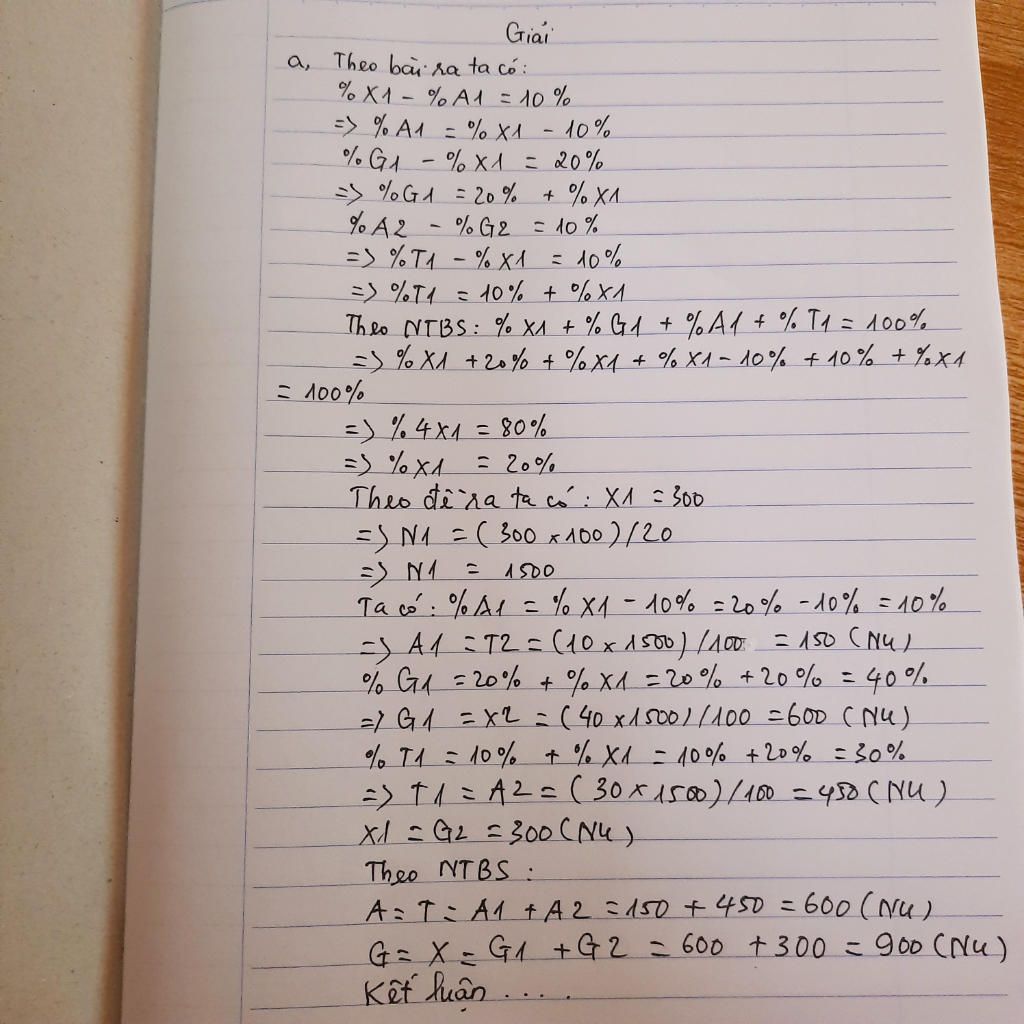 Giải
a, Theo bài ra ta có:
% X1 - % A1 = 10%
=> % A1 = % X1 - 10%
% G1 - % X1 = 20%
=> % G1 = 20% + % X1
% A2 - % G2 = 10%
=> % T1 - % X1 = 10%
=> % T1 = 10% + % X1
Theo NTBS: % X1 + % G1 + % A1 + % T1 = 100%
=> % X1 + 20% + % X1 + % X1 - 10% + 10% + % X1
= 100%
=> % 4X1 = 80%
=> % X1 = 20%
Theo đề ra ta có: X1 = 300
=> N1 = (300 x 100)/20
=> N1 = 1500
Ta có: % A1 = % X1 - 10% = 20% - 10% = 10%
=> A1 = T2 = (10 x 1500)/100 = 150 (Nu)
% G1 = 20% + % X1 = 20% + 20% = 40%
=> G1 = X2 = (40 x 1500)/100 = 600 (Nu)
% T1 = 10% + % X1 = 10% + 20% = 30%
=> T1 = A2 = (30 x 1500)/100 = 450 (Nu)
X1 = G2 = 300 (Nu)
Theo NTBS:
A = T = A1 + A2 = 150 + 450 = 600 (Nu)
G = X = G1 + G2 = 600 + 300 = 900 (Nu)
Kết luận ....